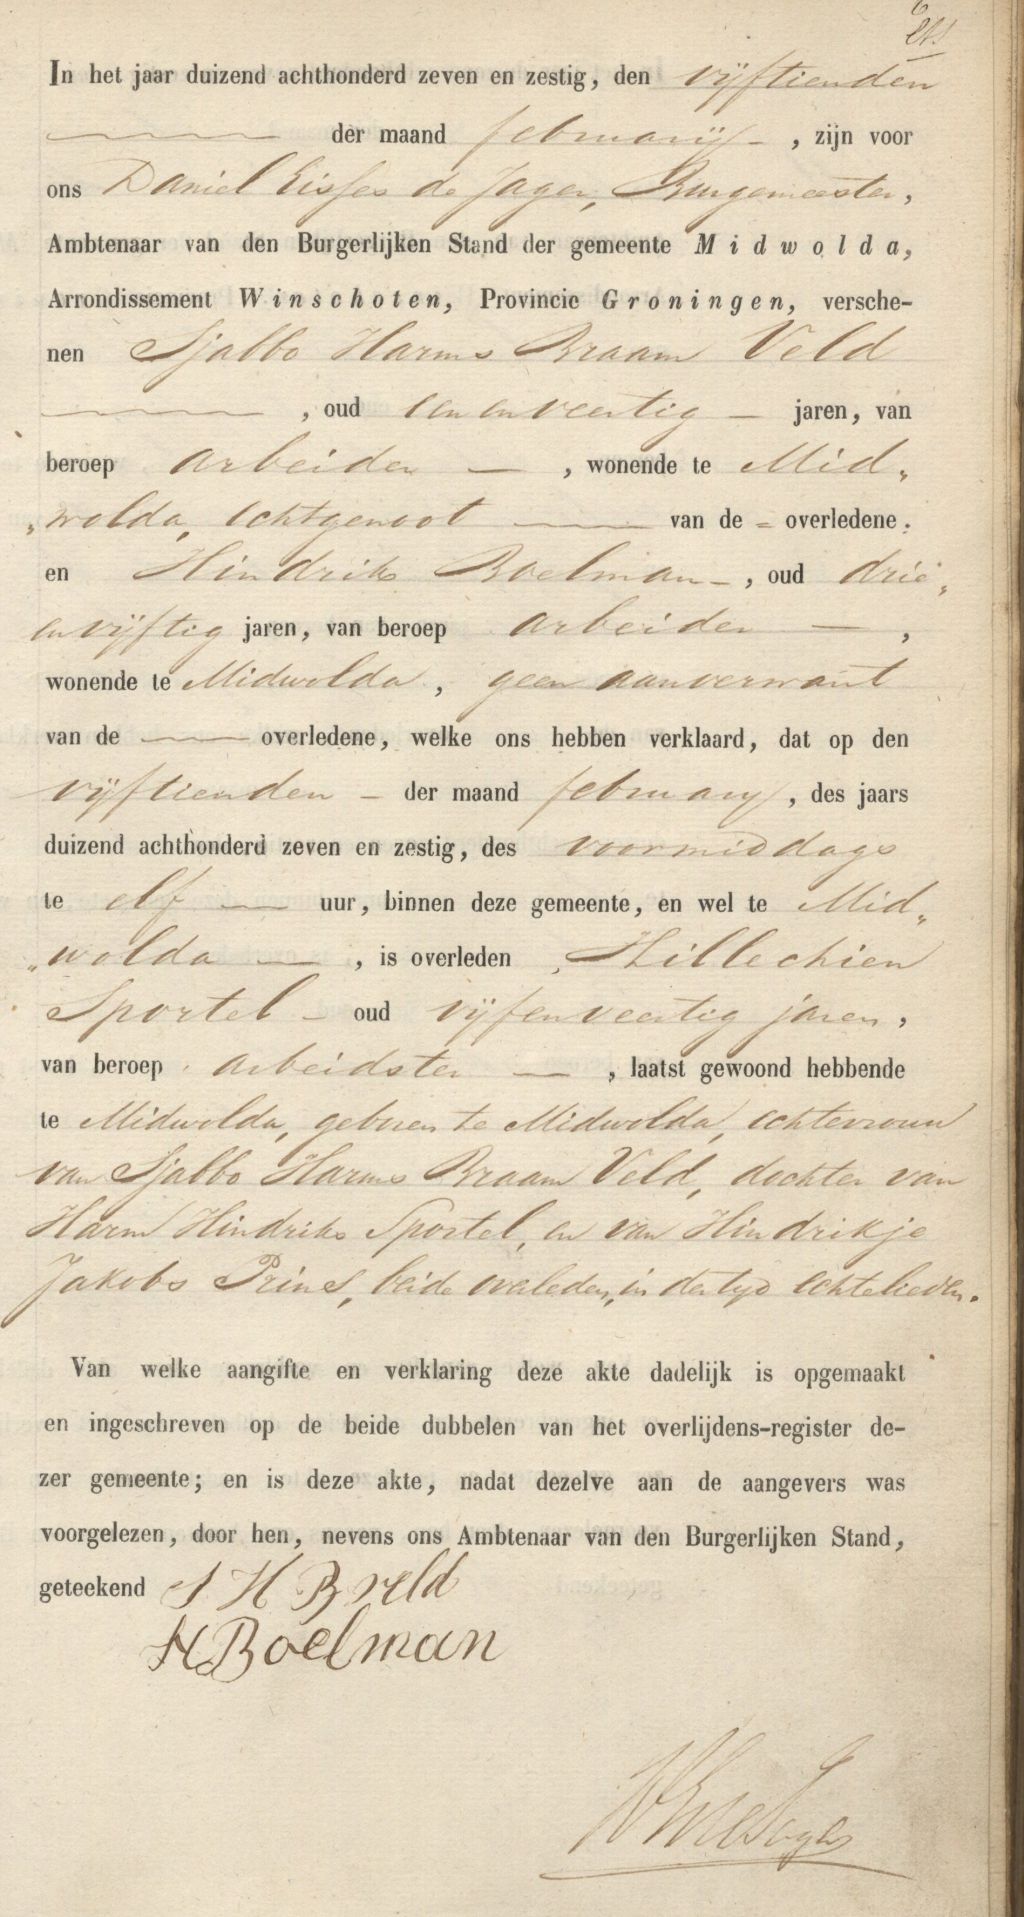 In het jaar duizend achthonderd zeven en zestig, den vijftienden
der maand februarij, zijn voor
ons Daniel Eisses de Jager, Burgemeester,
Ambtenaar van den Burgerlijken Stand der gemeente Midwolda,
Arrondissement Winschoten, Provincie Groningen, versche-
nen Sjabbo Harms Braam Veld
, oud een en veertig jaren, van
beroep arbeider , wonende te Mid„
„wolda, echtgenoot van de overledene:
en Hindrik Boelman , oud drie„
en vijftig jaren, van beroep arbeider ,
wonende te Midwolda, geen aanverwant
van de overledene, welke ons hebben verklaard, dat op den
vijftienden der maand februarij, des jaars
duizend achthonderd zeven en zestig, des voormiddags
te elf uur, binnen deze gemeente, en wel te Mid„
„wolda , is overleden Hillechien
Sportel oud vijfenveertig jaren,
van beroep arbeidster , laatst gewoond hebbende
te Midwolda, geboren te Midwolda, echtevrouw
van Sjabbo Harms Braam Veld, dochter van
Harm Hindriks Sportel, en van Hindrikje
Jakobs Prins, beide overleden, in der tijd echtelieden.
Van welke aangifte en verklaring deze akte dadelijk is opgemaakt
en ingeschreven op de beide dubbelen van het overlijdens-register de-
zer gemeente; en is deze akte, nadat dezelve aan de aangevers was
voorgelezen, door hen, nevens ons Ambtenaar van den Burgerlijken Stand,
geteekend S H B veld
H Boelman
DE de Jager